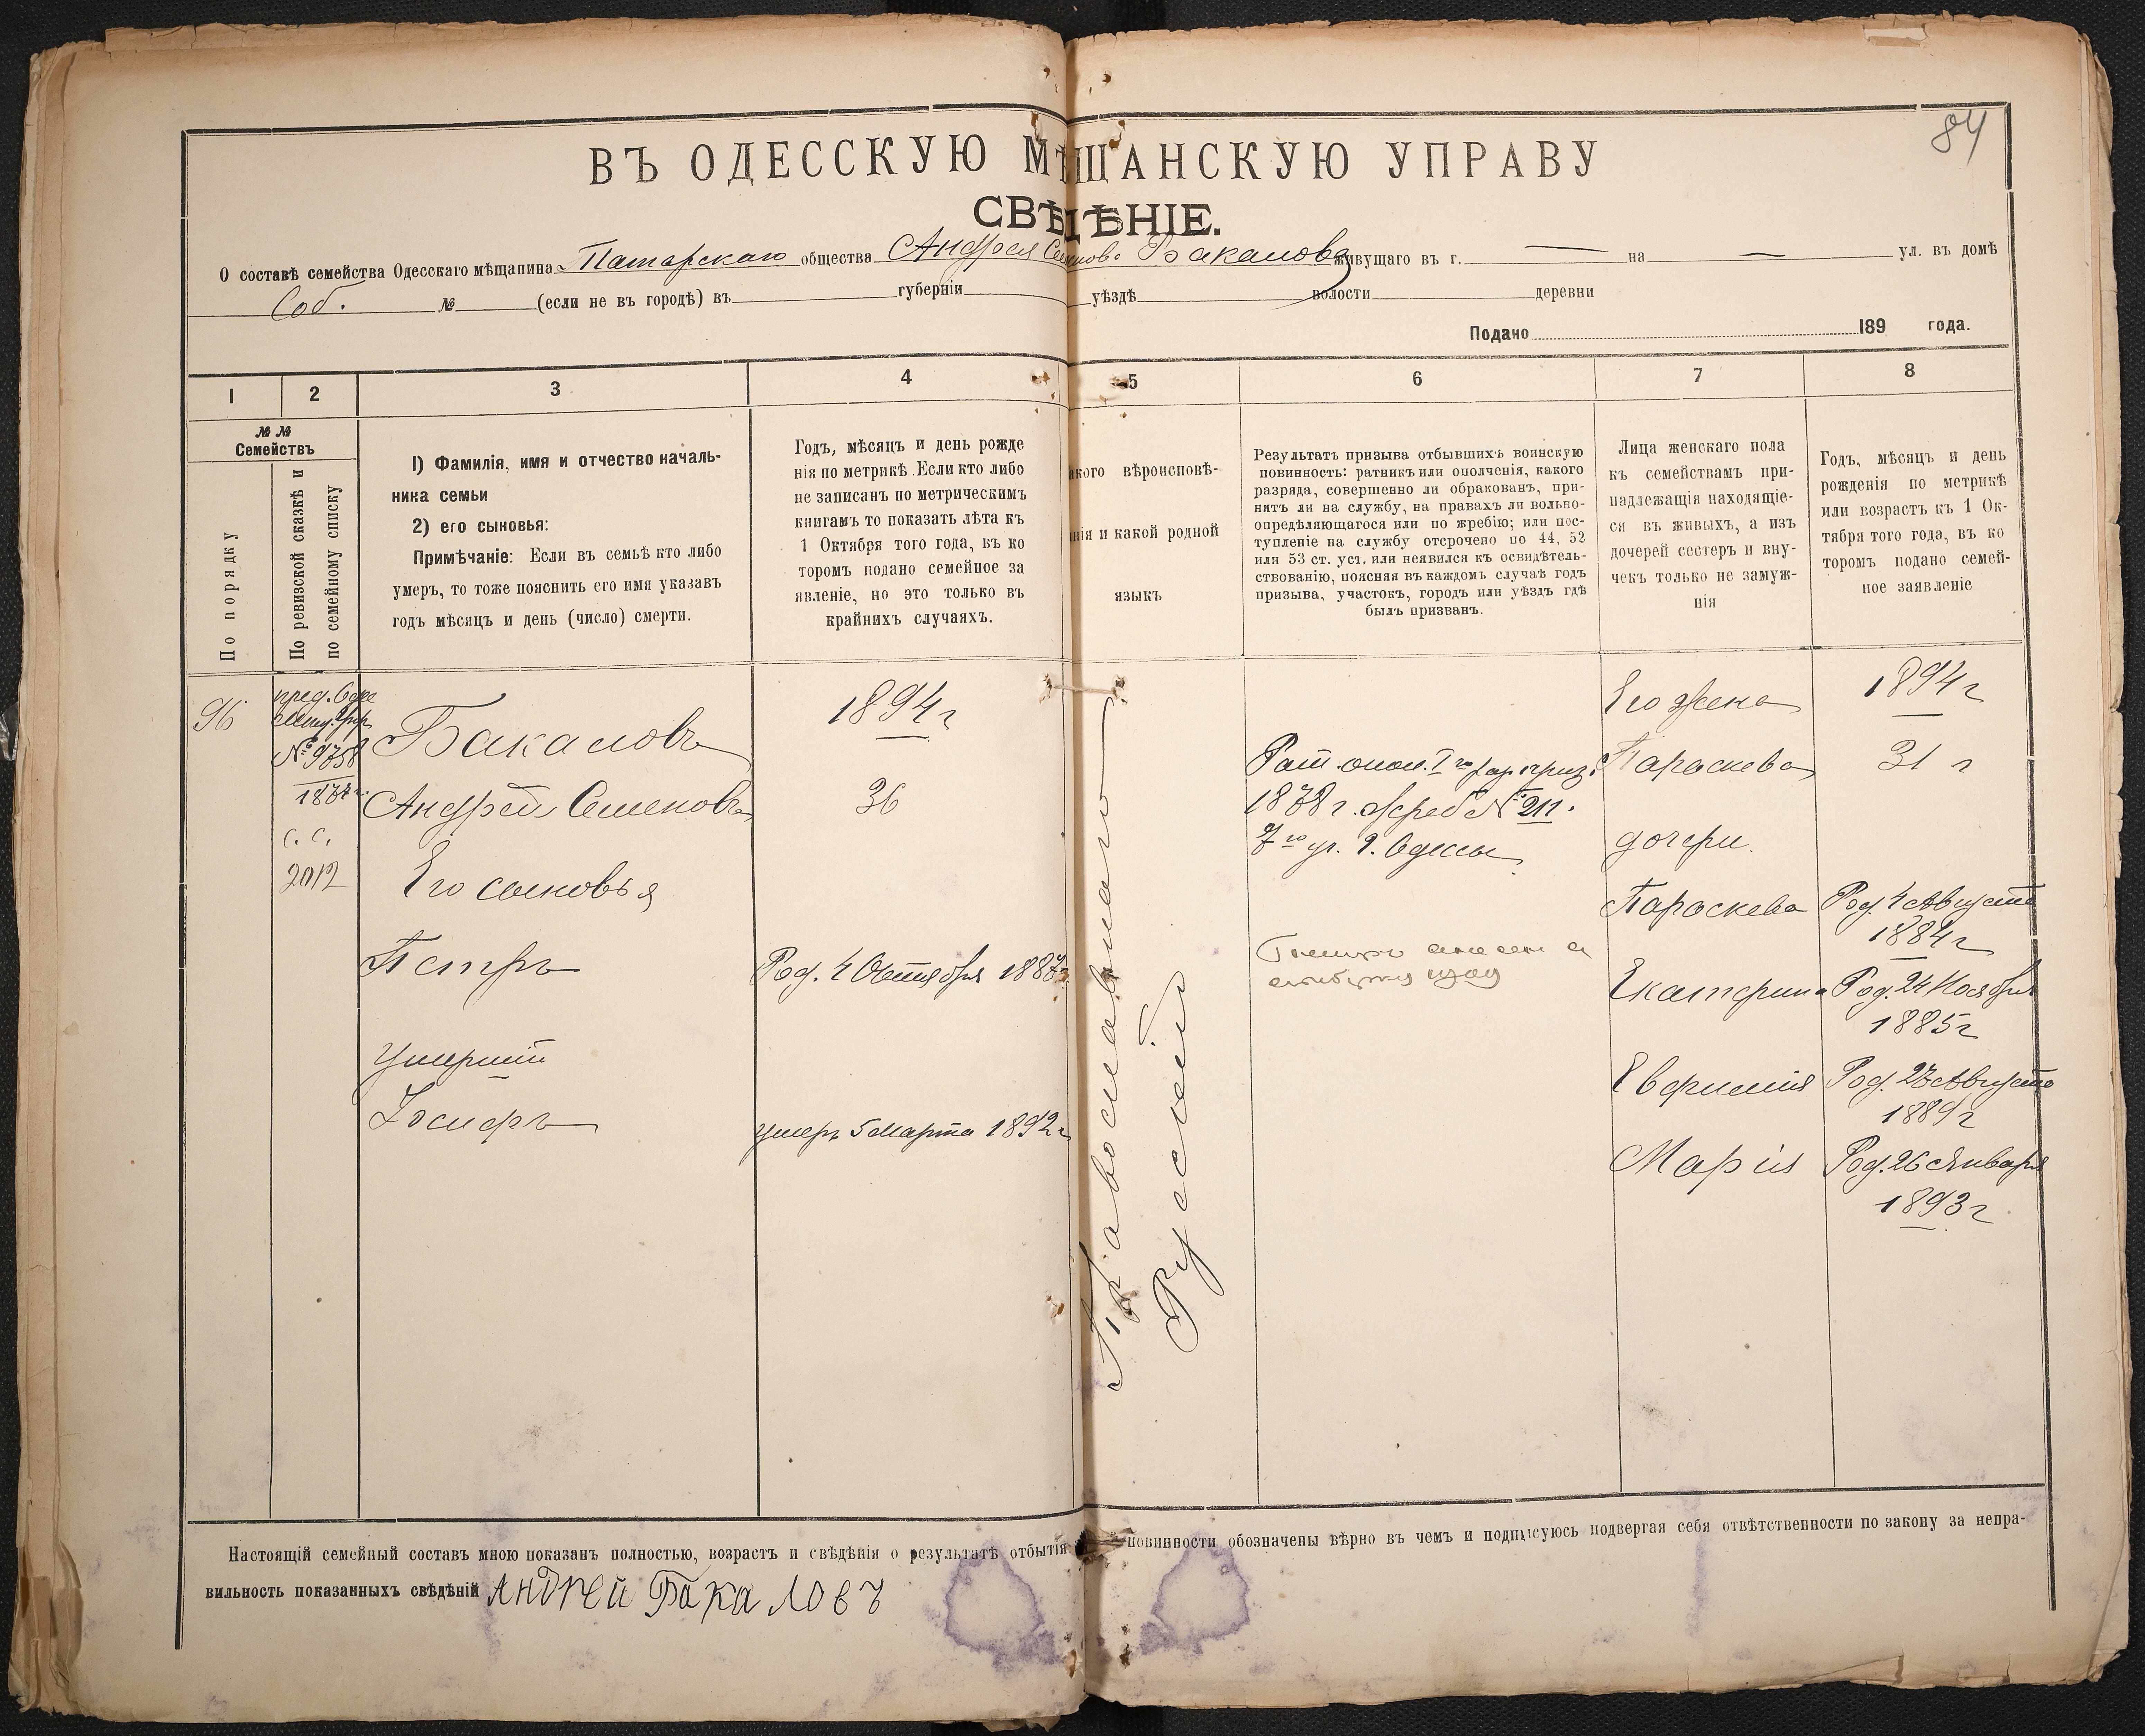 84
ВЪ ОДЕССКУЮ МѢЩАНСКУЮ УПРАВУ
СВѢДѢНІЕ.
О составѣ семейства Одесскаго мѣщанина Татарскаго общества Андрея Семенова Бакалова живущаго въ г. — на — ул. въ домѣ
Соб. № (если не въ городѣ) въ губерніи уѣздѣ волости деревни
Подано 189 года.
1 2 3 4 5 6 7 8
№ №
Семействъ
По порядку
По ревизской сказкѣ и
по семейному списку
1) Фамилія, имя и отчество началь-
ника семьи
2) его сыновья:
Примѣчаніе: Если въ семьѣ кто либо
умеръ, то тоже пояснить его имя указавъ
годъ мѣсяцъ и день (число) смерти.
Годъ, мѣсяцъ и день рожде
нія по метрикѣ. Если кто либо
не записанъ по метрическимъ
книгамъ то показать лѣта къ
1 Октября того года, въ ко
торомъ подано семейное за
явленіе, но это только въ
крайнихъ случаяхъ.
кого вѣроисповѣ-
нія и какой родной
языкъ
Результатъ призыва отбывшихъ воинскую
повинность: ратникъ или ополченія, какого
разряда, совершенно ли обракованъ, при-
нятъ ли на службу, на правахъ ли вольно-
опредѣляющагося или по жребію; или пос-
тупленіе на службу отсрочено по 44, 52
или 53 ст. уст. или неявился къ освидѣтель-
ствованію, поясняя въ каждомъ случаѣ годъ
призыва, участокъ, городъ или уѣздъ гдѣ
былъ призванъ.
Лица женскаго пола
къ семействамъ при-
надлежащія находящіе-
ся въ живыхъ, а изъ
дочерей сестеръ и вну-
чекъ только не замуж-
нія
Годъ, мѣсяцъ и день
рожденія по метрикѣ
или возрастъ къ 1 Ок-
тября того года, въ ко
торомъ подано семей-
ное заявленіе
96
пред.
№ 9758
с. с.
2012
Бакаловъ
Андрей Семеновъ
Его сыновья
Петръ
Умершій
Іосифъ
1894 г
36
Род. 4 Октября 1887 г
умеръ 5 Марта 1892 г
Православнаго
Русскій
Рат. опол. I го раз. приз.
1878 г. жреб № 211.
7 го уч. г. Одессы
Его жена
Параскева
дочери.
Параскева
Екатерина
Евфимія
Марія
1894 г
31 г
Род. 4 Августа
1884 г
Род. 24 Ноября
1885 г
Род. 27 Августа
1889 г
Род. 26 Января
1893 г
Настоящій семейный составъ мною показанъ полностью, возрастъ и свѣдѣнія о результатѣ отбытія повинности обозначены вѣрно въ чемъ и подписуюсь подвергая себя отвѣтственности по закону за непра-
вильность показанныхъ свѣдѣній Андрей Бакаловъ